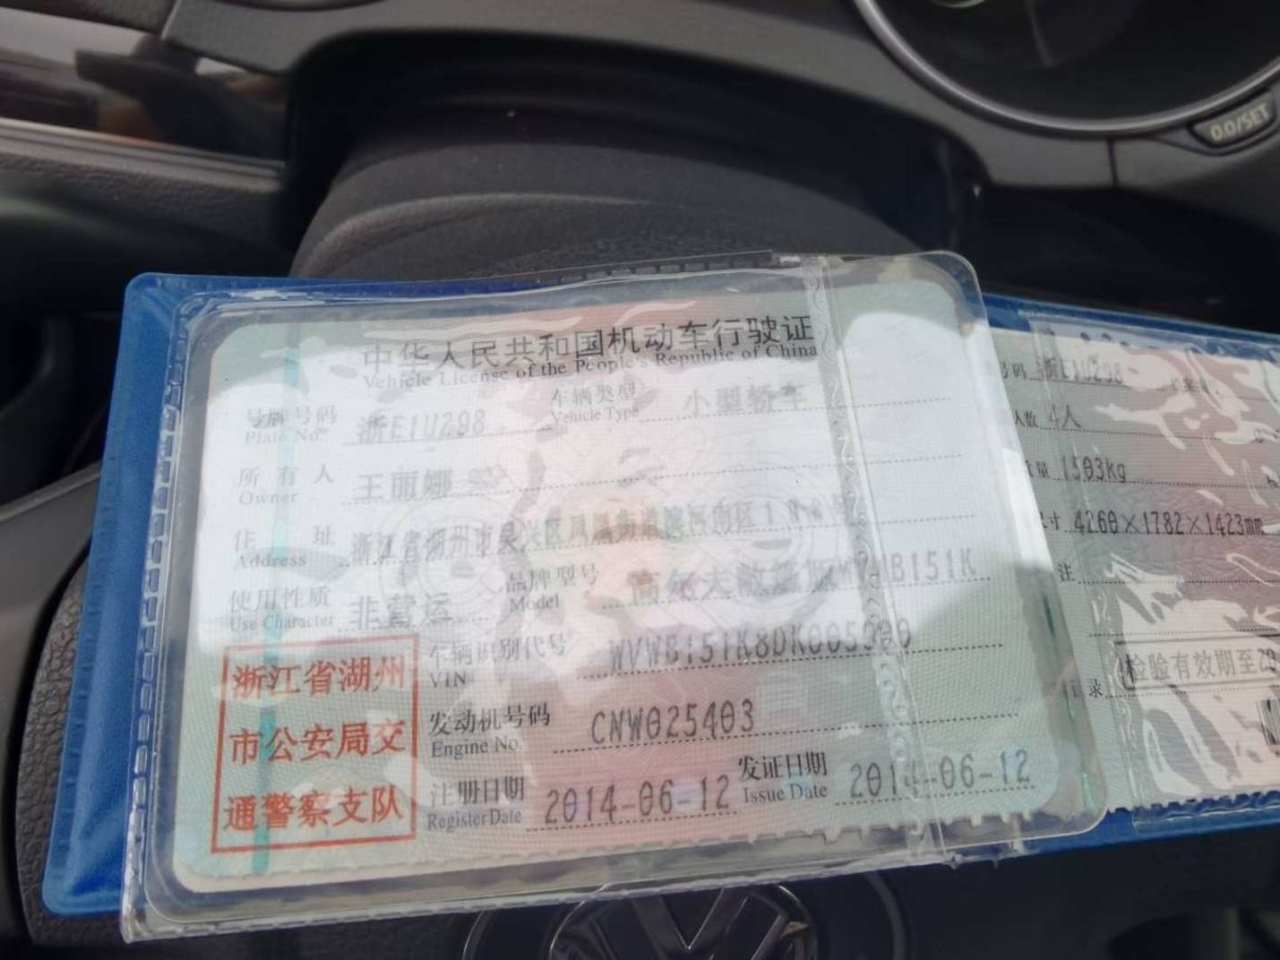 0.0/SET
中华人民共和国机动车行驶证
Vehicle License of the People's Republic of China
号牌号码 浙E1U298 车辆类型 小型轿车
Plate No. Vehicle Type
所有人 王丽娜
Owner
住址 浙江省湖州市吴兴区凤凰街道
Address
使用性质 非营运 品牌型号 高尔夫 B151K
Use Character Model
车辆识别代号 WVWB151K8DK005
VIN
发动机号码 CNW025403
Engine No.
注册日期 2014-06-12 发证日期 2014-06-12
Register Date Issue Date
浙江省湖州
市公安局交
通警察支队
号码 浙E1U298
人数 4人
量 1503kg
尺寸 4260×1782×1423mm
注
录 检验有效期至20